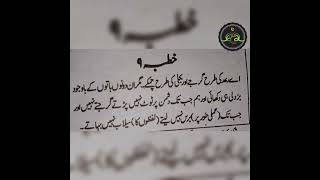 خطبہ ۹
اے رعد کی طرح گرجے اور بجلی کی طرح چمکے۔ مگر ان دونوں باتوں کے باوجود
بزدلی ہی دکھائی اور ہم جب تک دشمن پر ٹوٹ نہیں پڑتے گرجتے نہیں اور
جب تک (عملی طور پر) برس نہیں لیتے (لفظوں کا) سیلاب نہیں بہاتے۔